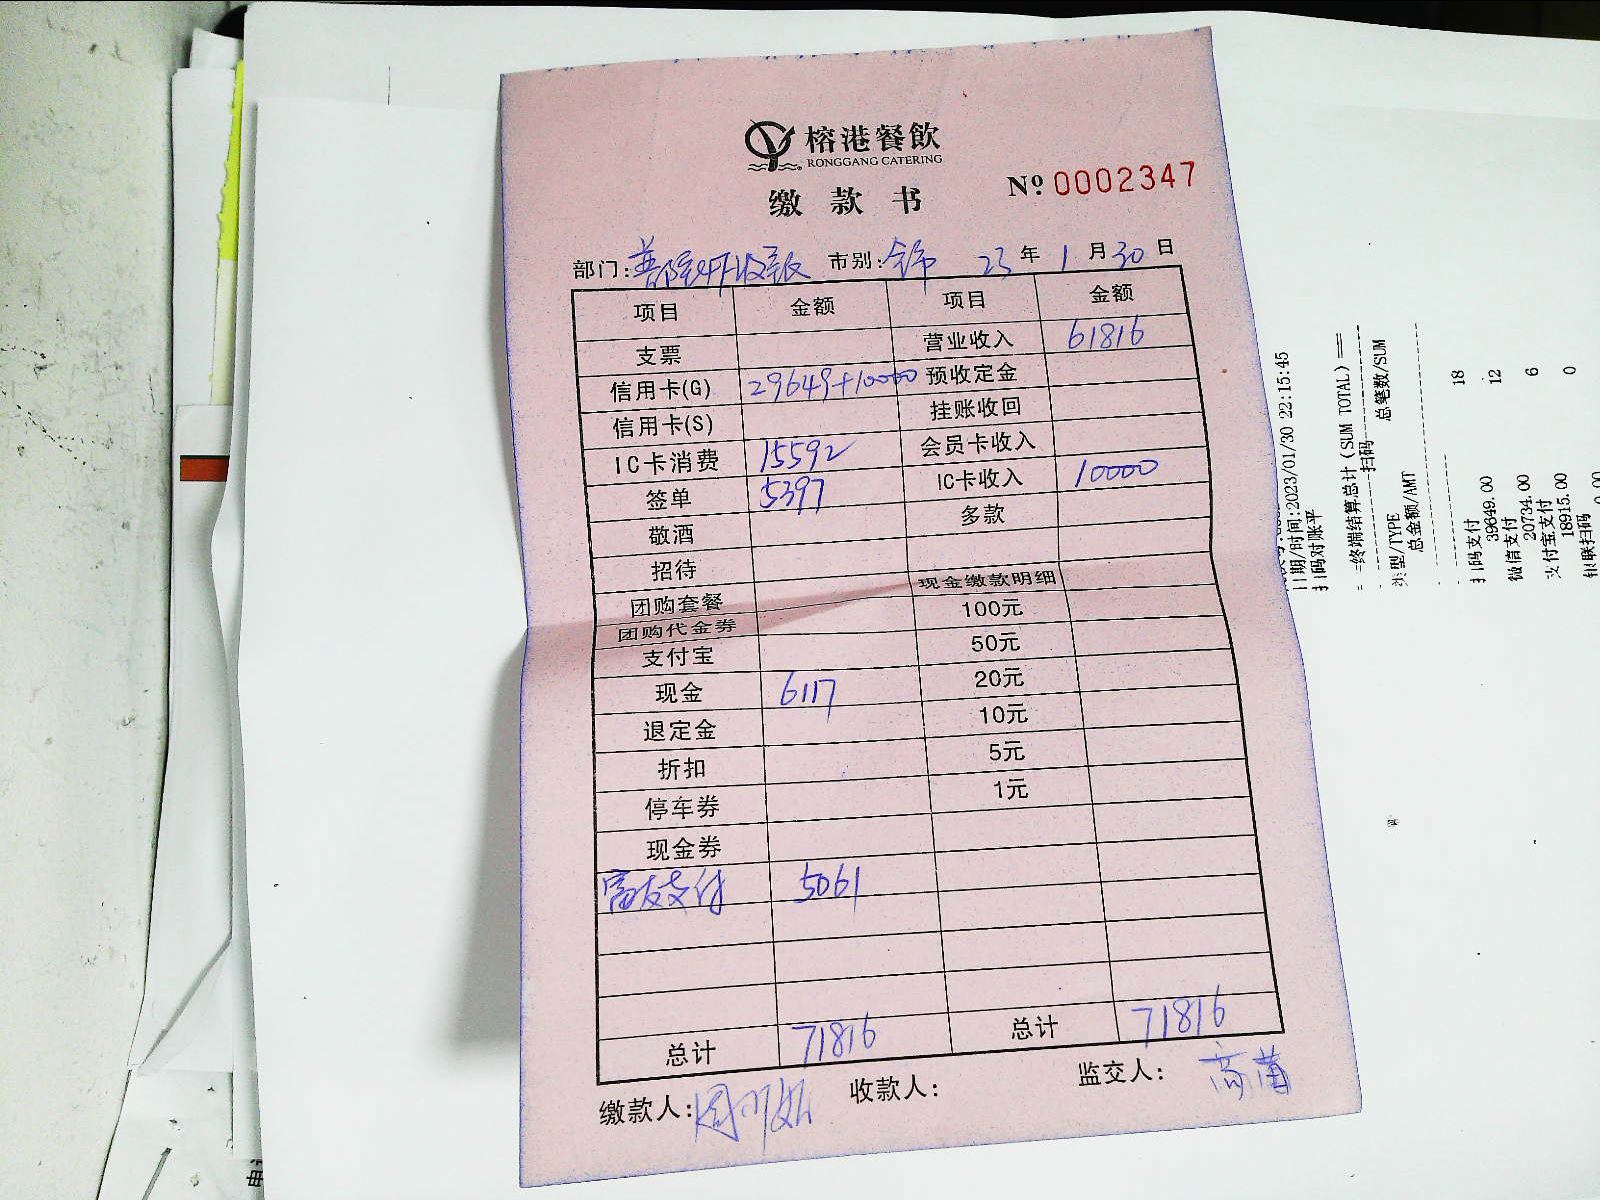 榕港餐飲
RONGGANG CATERING
缴款书
№ 0002347
部门: 市别:全市 23 年 1 月 30 日
项目 金额 项目 金额
支票 营业收入 61816
信用卡(G) 29649+10000 预收定金
信用卡(S) 挂账收回
IC卡消费 15592 会员卡收入
签单 5397 IC卡收入 10000
敬酒 多款
招待
团购套餐 现金缴款明细
团购代金券 100元
支付宝 50元
现金 6117 20元
退定金 10元
折扣 5元
停车券 1元
现金券
富友支付 5061
总计 71816 总计 71816
缴款人: 收款人: 监交人:
日期/时间:2023/01/30 22:15:45
扫码对账平
==终端结算总计(SUM TOTAL)==
扫码
类型/TYPE 总笔数/SUM
总金额/AMT
扫码支付 18
39649.00
微信支付 12
20734.00
支付宝支付 6
18915.00
银联扫码 0
0.00